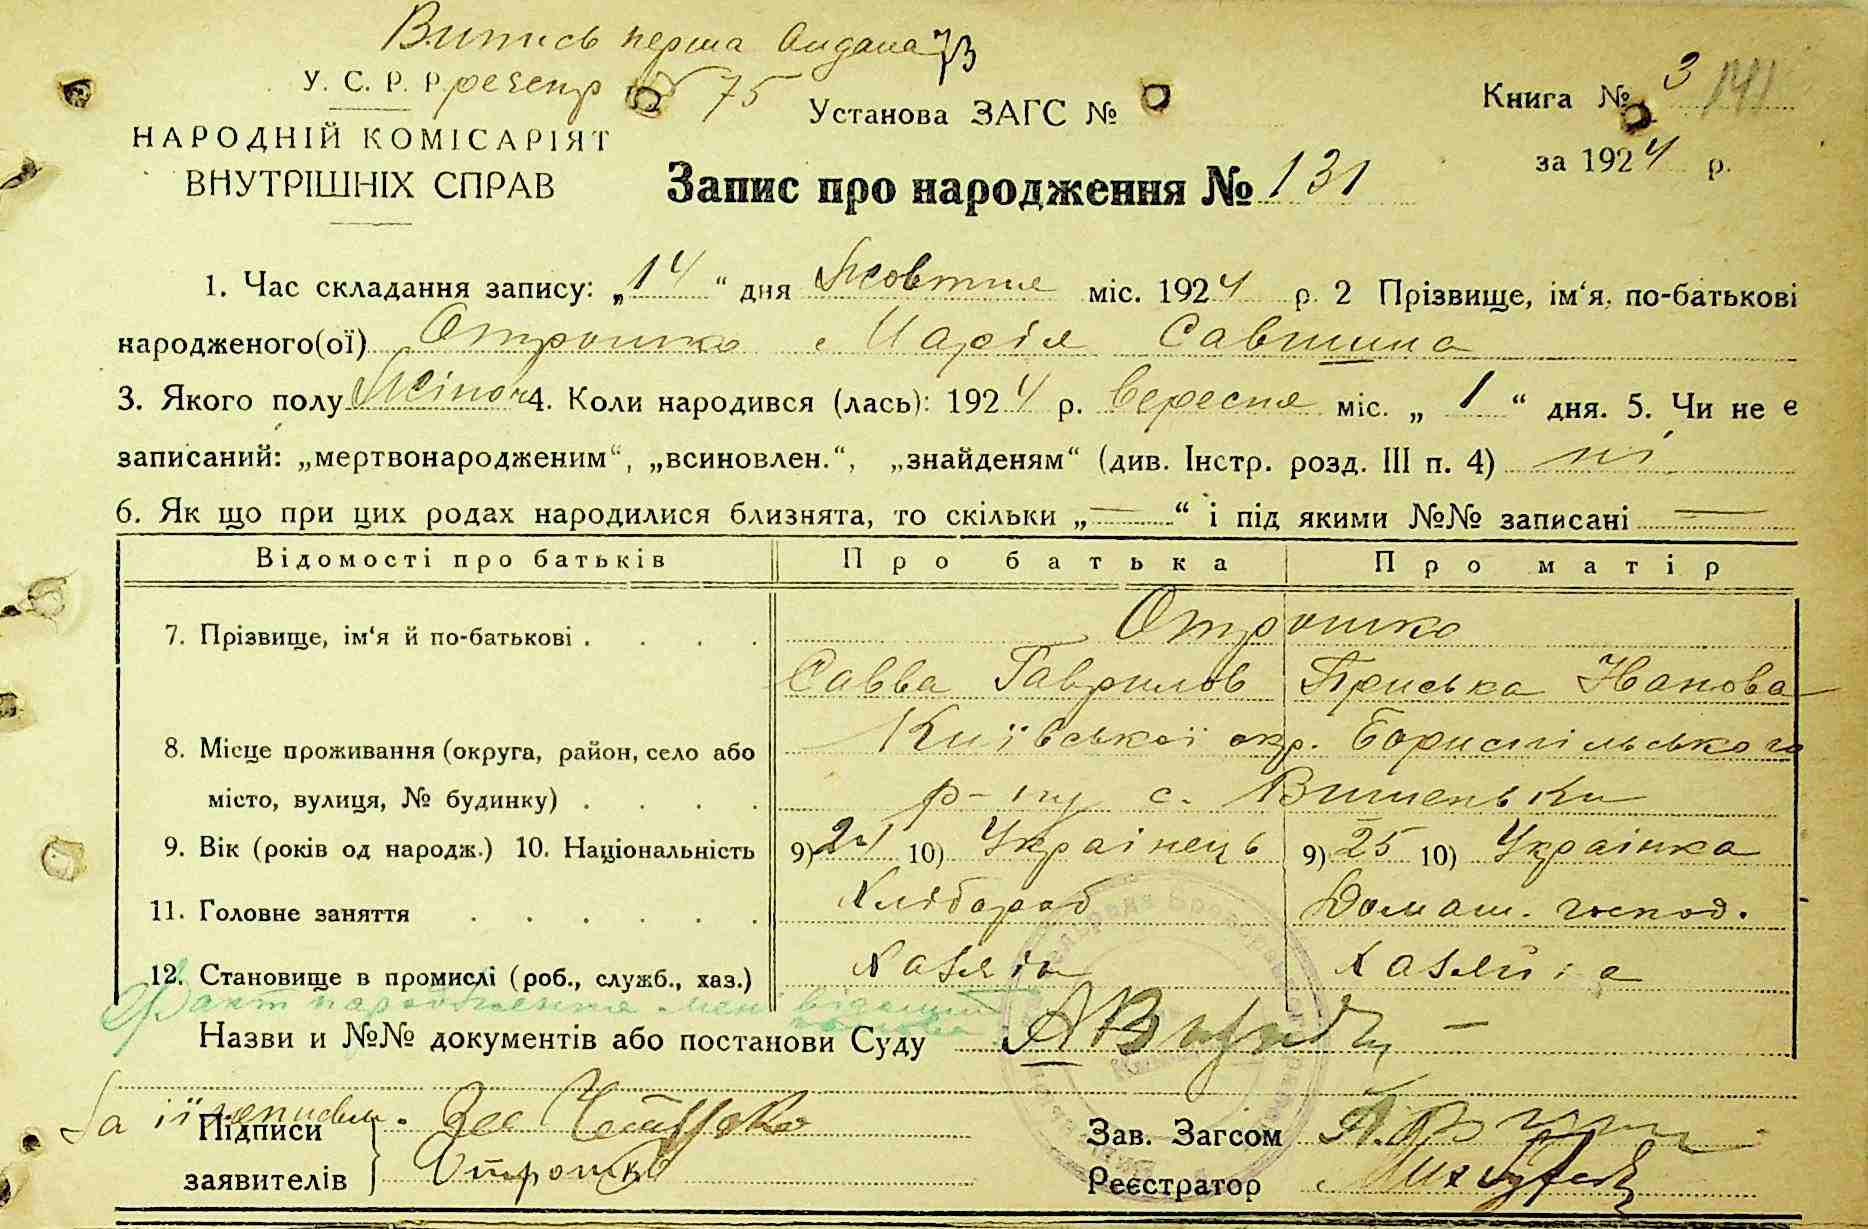 Витись перша видана
У. С. Р. Р. реєстр № 75 Установа ЗАГС № Книга № 3 141
НАРОДНІЙ КОМІСАРІЯТ
ВНУТРІШНІХ СПРАВ
за 1924 р.
Запис про народження № 131
1. Час складання запису: „14“ дня Жовтня міс. 1924 р. 2 Прізвище, ім‘я, по-батькові
народженого(ої) Отрошко Марія Саввишна
3. Якого полу Жіноч 4. Коли народився (лась): 1924 р. вересня міс. „1“ дня. 5. Чи не є
записаний: „мертвонародженим“, „всиновлен.“, „знайденям“ (див. Інстр. розд. III п. 4) ні
6. Як що при цих родах народилися близнята, то скільки „—“ і під якими №№ записані —
Відомості про батьків Про батька Про матір
7. Прізвище, ім‘я й по-батькові . . . . Отрошко
Савва Гаврилов Приська Иванова
8. Місце проживання (округа, район, село або Київської окр. Бориспільського
місто, вулиця, № будинку) . . . . р-ну с. Вишеньки
9. Вік (років од народж.) 10. Національність 9) 24 10) Українець 9) 25 10) Українка
11. Головне заняття . . . . . . Хлібороб Домаш. господ.
12. Становище в промислі (роб., служб., хаз.) Хазяїн Хазяйка
Факт народження мені відомий
Назви и №№ документів або постанови Суду —
За її
Підписи
заявителів Отрошко
Зав. Загсом
Реєстратор